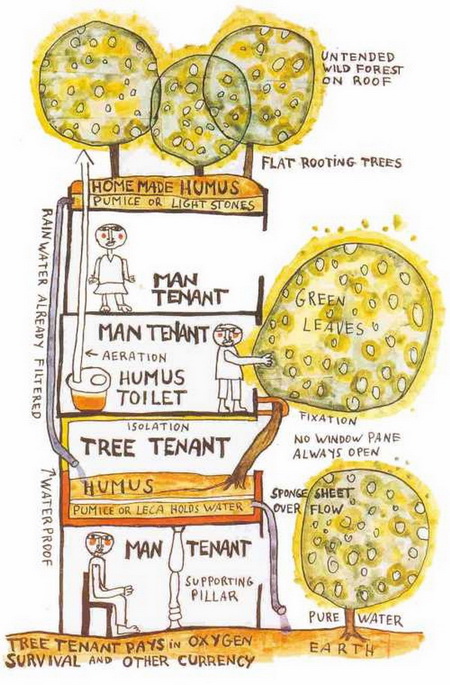 UNTENDED
WILD FOREST
ON ROOF
FLAT ROOTING TREES
HOME MADE HUMUS
PUMICE OR LIGHT STONES
RAINWATER ALREADY FILTERED
MAN
TENANT
GREEN
LEAVES
MAN TENANT
← AERATION
HUMUS
TOILET
ISOLATION
FIXATION
TREE TENANT
NO WINDOW PANE
ALWAYS OPEN
HUMUS
SPONGE SHEET
OVER FLOW
PUMICE OR LECA HOLDS WATER
↑WATERPROOF
MAN TENANT
SUPPORTING
PILLAR
PURE WATER
EARTH
TREE TENANT PAYS IN OXYGEN
SURVIVAL AND OTHER CURRENCY